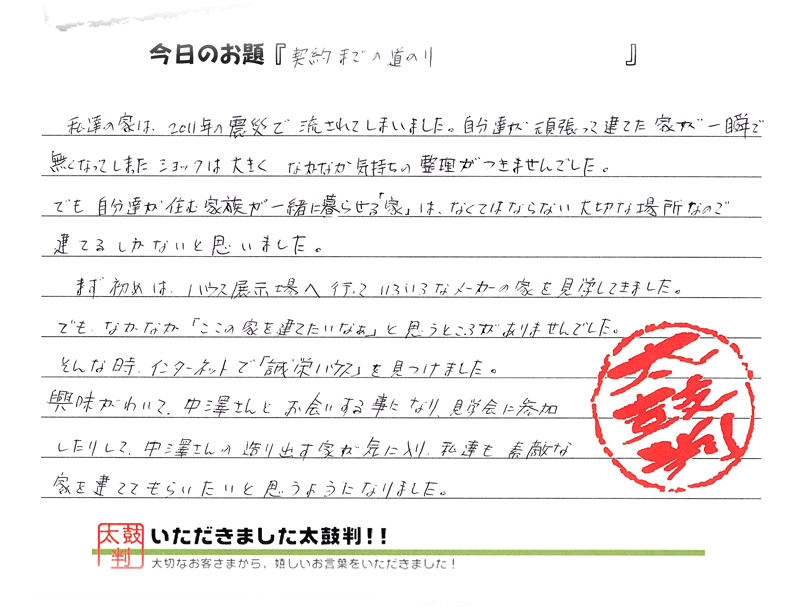 今日のお題『契約までの道のり』
私達の家は、2011年の震災で流されてしまいました。自分達が頑張って建てた家が一瞬で
無くなってしまたショックは大きく なかなか気持ちの整理がつきませんでした。
でも自分達が住む家族が一緒に暮らせる「家」は、なくてはならない大切な場所なので
建てるしかないと思いました。
まず初めは、ハウス展示場へ行っていろいろなメーカーの家を見学してきました。
でも、なかなか「ここの家を建てたいなぁ」と思うところがありませんでした。
そんな時、インターネットで「誠栄ハウス」を見つけました。
興味がわいて、中澤さんとお会いする事になり、見学会に参加
したりして、中澤さんの造り出す家が気に入り、私達も素敵な
家を建ててもらいたいと思うようになりました。
太鼓判
太鼓判
いただきました太鼓判!!
大切なお客さまから、嬉しいお言葉をいただきました!